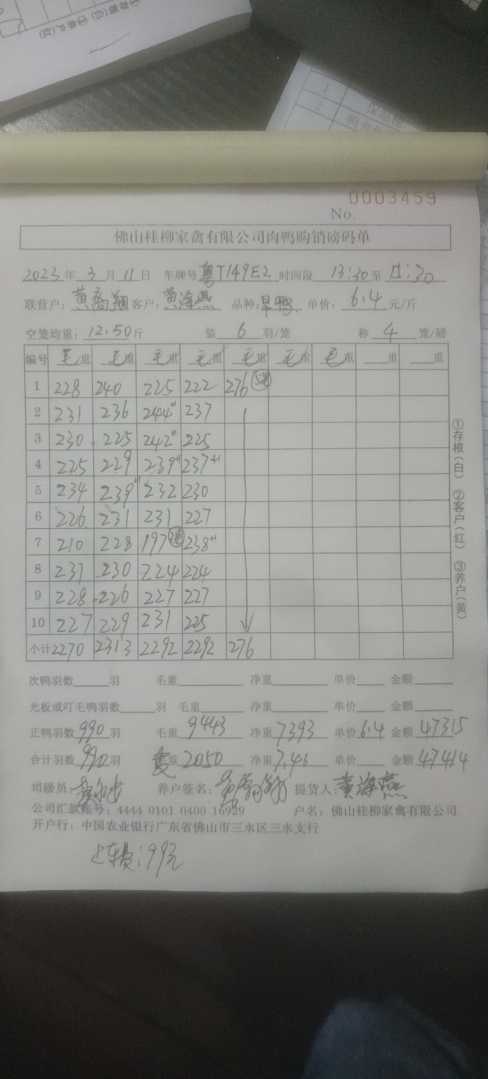 0003459
No.
佛山桂柳家禽有限公司肉鸭购销磅码单
2023年3月11日 车牌号粤T149E2时间段 13:30至
联营户: 客户:黄海燕 品种: 单价: 6.4 元/斤
空笼均重: 12.50斤 装 6 羽/笼 称 4 笼/磅
编号 毛重 毛重 毛重 毛重 毛重 毛重 毛重 重 重
1 228 240 225 222 276
2 231 236 244 237
3 230 225 242 225
4 225 229 239 237
5 234 239 232 230
6 226 231 231 227
7 210 228 197 238
8 231 230 224 224
9 228 226 227 227
10 227 229 231 225
小计 2270 2313 2292 2292 276
①存根(白) ②客户(红) ③养户(黄)
次鸭羽数 羽 毛重 净重 单价 金额
光板或叮毛鸭羽数 羽 毛重 净重 单价 金额
正鸭羽数 990 羽 毛重 9443 净重 7393 单价 6.4 金额 47315
合计羽数 990 羽 重 2050 净重 7.46 单价 金额 47414
司磅员: 养户签名: 提货人: 黄海燕
公司汇款账号: 4444 0101 0400 16929 户名: 佛山桂柳家禽有限公司
开户行: 中国农业银行广东省佛山市三水区三水支行
上车费: 99元